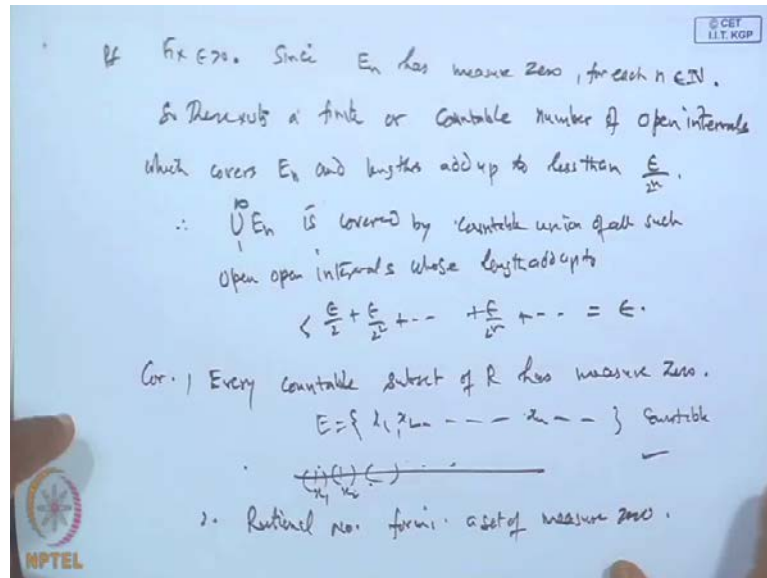 © CET
I.I.T. KGP
Pf Fix ε>0. Since En has measure zero, for each n ∈ N.
So There exists a finite or countable number of open intervals
which covers En and lengths add up to less than ε/2^n.
∴ ∞∪1 En is covered by countable union of all such
open open intervals whose length add up to
< ε/2 + ε/2^2 + -- + ε/2^n + -- = ε.
Cor. 1 Every countable subset of R has measure zero.
E = { x1, x2, -- - - - - xn - - } Countable
x1 x2
2. Rational no. forms a set of measure zero.
NPTEL